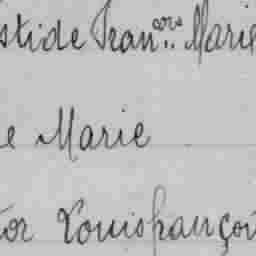 stide Fran.çois Marie
e Marie
tor Louis françoi